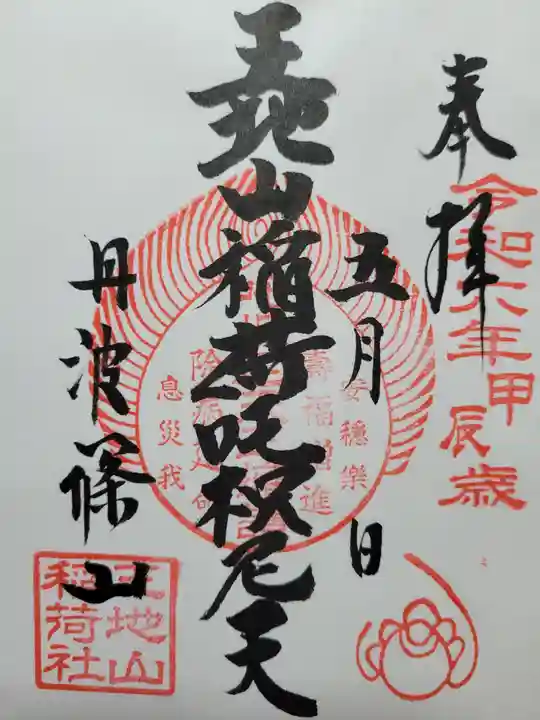 奉拝
令和六年甲辰歳
五月 日
王地山稲荷吒枳尼天
安穏樂
壽福増進
除病延命
息災我
丹波篠山
王地山
稲荷社